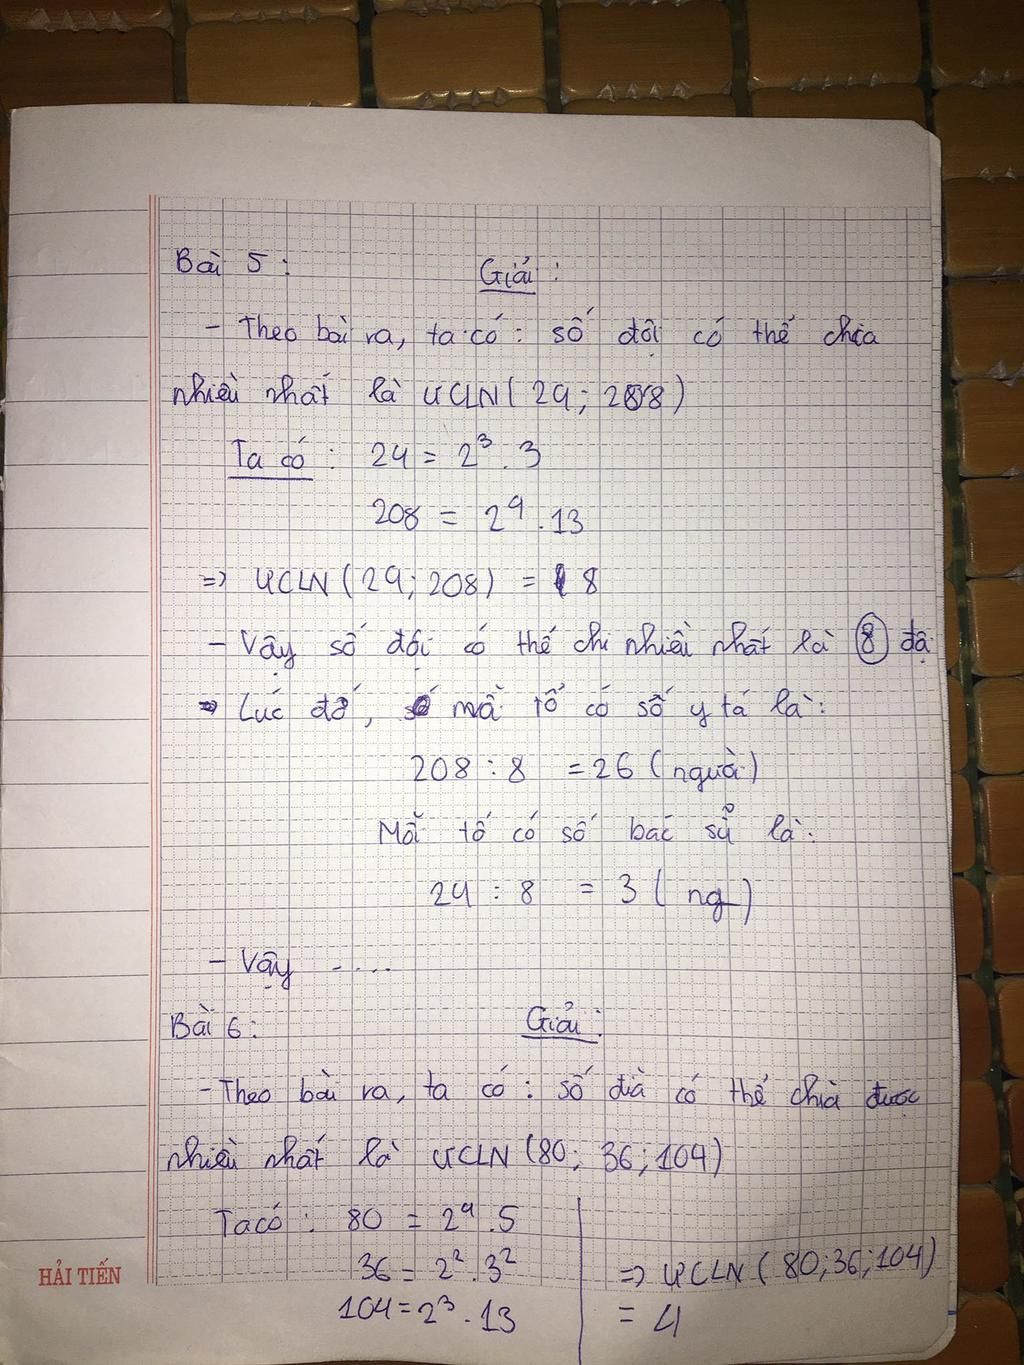 Bài 5 :
Giải :
- Theo bài ra, ta có : số đội có thể chia
nhiều nhất là ƯCLN( 24 ; 208 )
Ta có : 24 = 2³ . 3
208 = 2⁴ . 13
=> ƯCLN ( 24 ; 208 ) = 8
- Vậy số đội có thể chi nhiều nhất là 8 độ
Lúc đó, mỗi tổ có số y tá là :
208 : 8 = 26 ( người )
Mỗi tổ có số bác sỹ là :
24 : 8 = 3 ( ng )
- Vậy .....
Bài 6 :
Giải :
- Theo bài ra, ta có : số đĩa có thể chia được
nhiều nhất là ƯCLN (80 ; 36 ; 104)
Ta có : 80 = 2⁴ . 5
36 = 2² . 3²
104 = 2³ . 13
=> ƯCLN ( 80 ; 36 ; 104)
= 4
HẢI TIẾN